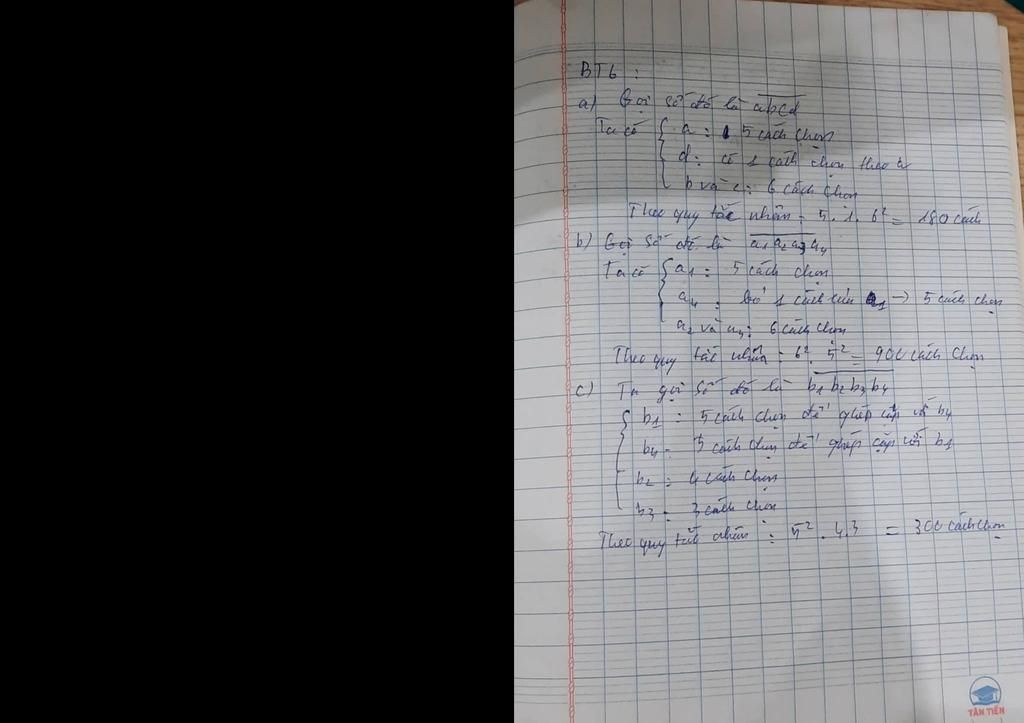 BT6 :
a) Gọi số đó là abcd
Ta có a : 5 cách chọn
d : có 1 cách chọn theo a
b và c : 6 cách chọn
Theo quy tắc nhân : 5 . 1 . 6² = 180 cách
b) Gọi số đó là a₁a₂a₃a₄
Ta có a₁ : 5 cách chọn
a₄ : bỏ 1 cách của a₁ → 5 cách chọn
a₂ và a₃ : 6 cách chọn
Theo quy tắc nhân : 6² . 5² = 900 cách chọn
c) Ta gọi số đó là b₁b₂b₃b₄
b₁ : 5 cách chọn để ghép cặp với b₄
b₄ : 5 cách chọn để ghép cặp với b₁
b₂ : 4 cách chọn
b₃ : 3 cách chọn
Theo quy tắc nhân : 5² . 4.3 = 300 cách chọn
TÂN TIẾN